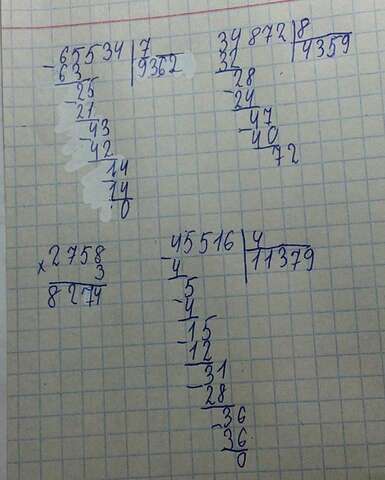 65534 | 7
- 63 9362
25
- 21
43
- 42
14
- 14
0
34872 | 8
- 32 4359
28
- 24
47
- 40
72
2758
× 3
8274
45516 | 4
- 4 11379
5
- 4
15
- 12
31
- 28
36
- 36
0